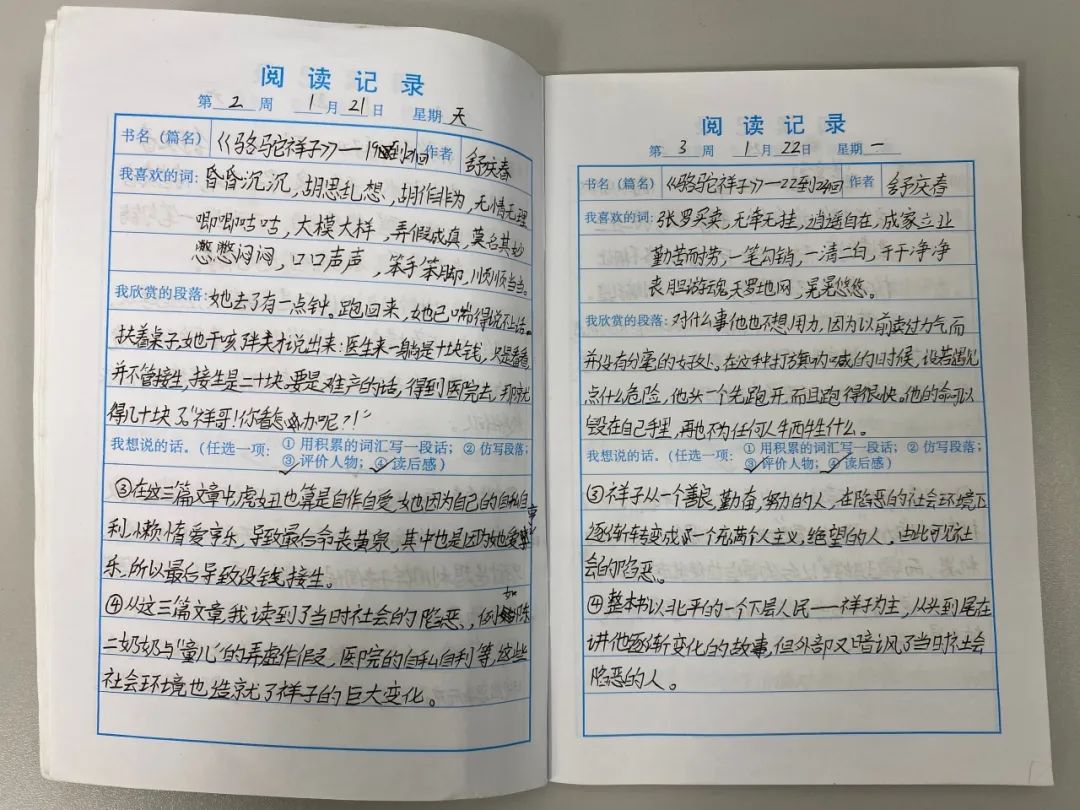 阅读记录
第 2 周 1 月 21 日 星期 天
书名（篇名） 《骆驼祥子》——19到21回 作者 舒庆春
我喜欢的词: 昏昏沉沉，胡思乱想，胡作非为，无情无理
唧唧咕咕，大模大样，弄假成真，莫名其妙
憋憋闷闷，口口声声，笨手笨脚，顺顺当当。
我欣赏的段落: 她去了有一点钟。跑回来，她已喘得说不上话。
扶着桌子，她干咳半天才说出来：医生来一趟是十块钱，只是看看，
并不管接生，接生是二十块。要是难产的话，得到医院去，那就
得几十块了“祥哥！你看怎办呢？！”
我想说的话。（任选一项： ① 用积累的词汇写一段话； ② 仿写段落；
③ 评价人物； ④ 读后感）
③在这三篇文章中，虎妞也算是自作自受，她因为自己的自私自
利，懒惰爱享乐，导致最后命丧黄泉，其中也是因为她爱享
乐，所以最后导致没钱接生。
④从这三篇文章，我读到了当时社会的险恶，例如陈
二奶奶与“童儿”的弄虚作假，医院的自私自利等，这些
社会环境也造就了祥子的巨大变化。
阅读记录
第 3 周 1 月 22 日 星期 一
书名（篇名） 《骆驼祥子》——22到24回 作者 舒庆春
我喜欢的词: 张罗买卖，无牵无挂，逍遥自在，成家立业
勤苦耐劳，一笔勾销，一清二白，干干净净
丧胆游魂，天罗地网，晃晃悠悠。
我欣赏的段落: 对什么事他也不想用力，因为以前卖过力气而
并没有分毫的好处。在这种打旗呐喊的时候，设若遇见
点什么危险，他头一个先跑开，而且跑得很快。他的命可以
毁在自己手里，再也不为任何人牺牲什么。
我想说的话。（任选一项： ① 用积累的词汇写一段话； ② 仿写段落；
③ 评价人物； ④ 读后感）
③祥子从一个善良，勤奋，努力的人，在险恶的社会环境下
逐渐转变成一个充满个人主义，绝望的人，由此可见社
会的险恶。
④整本书以北平的一个下层人民——祥子为主，从头到尾在
讲他逐渐变化的故事，但外部又暗讽了当时社会
险恶的人。